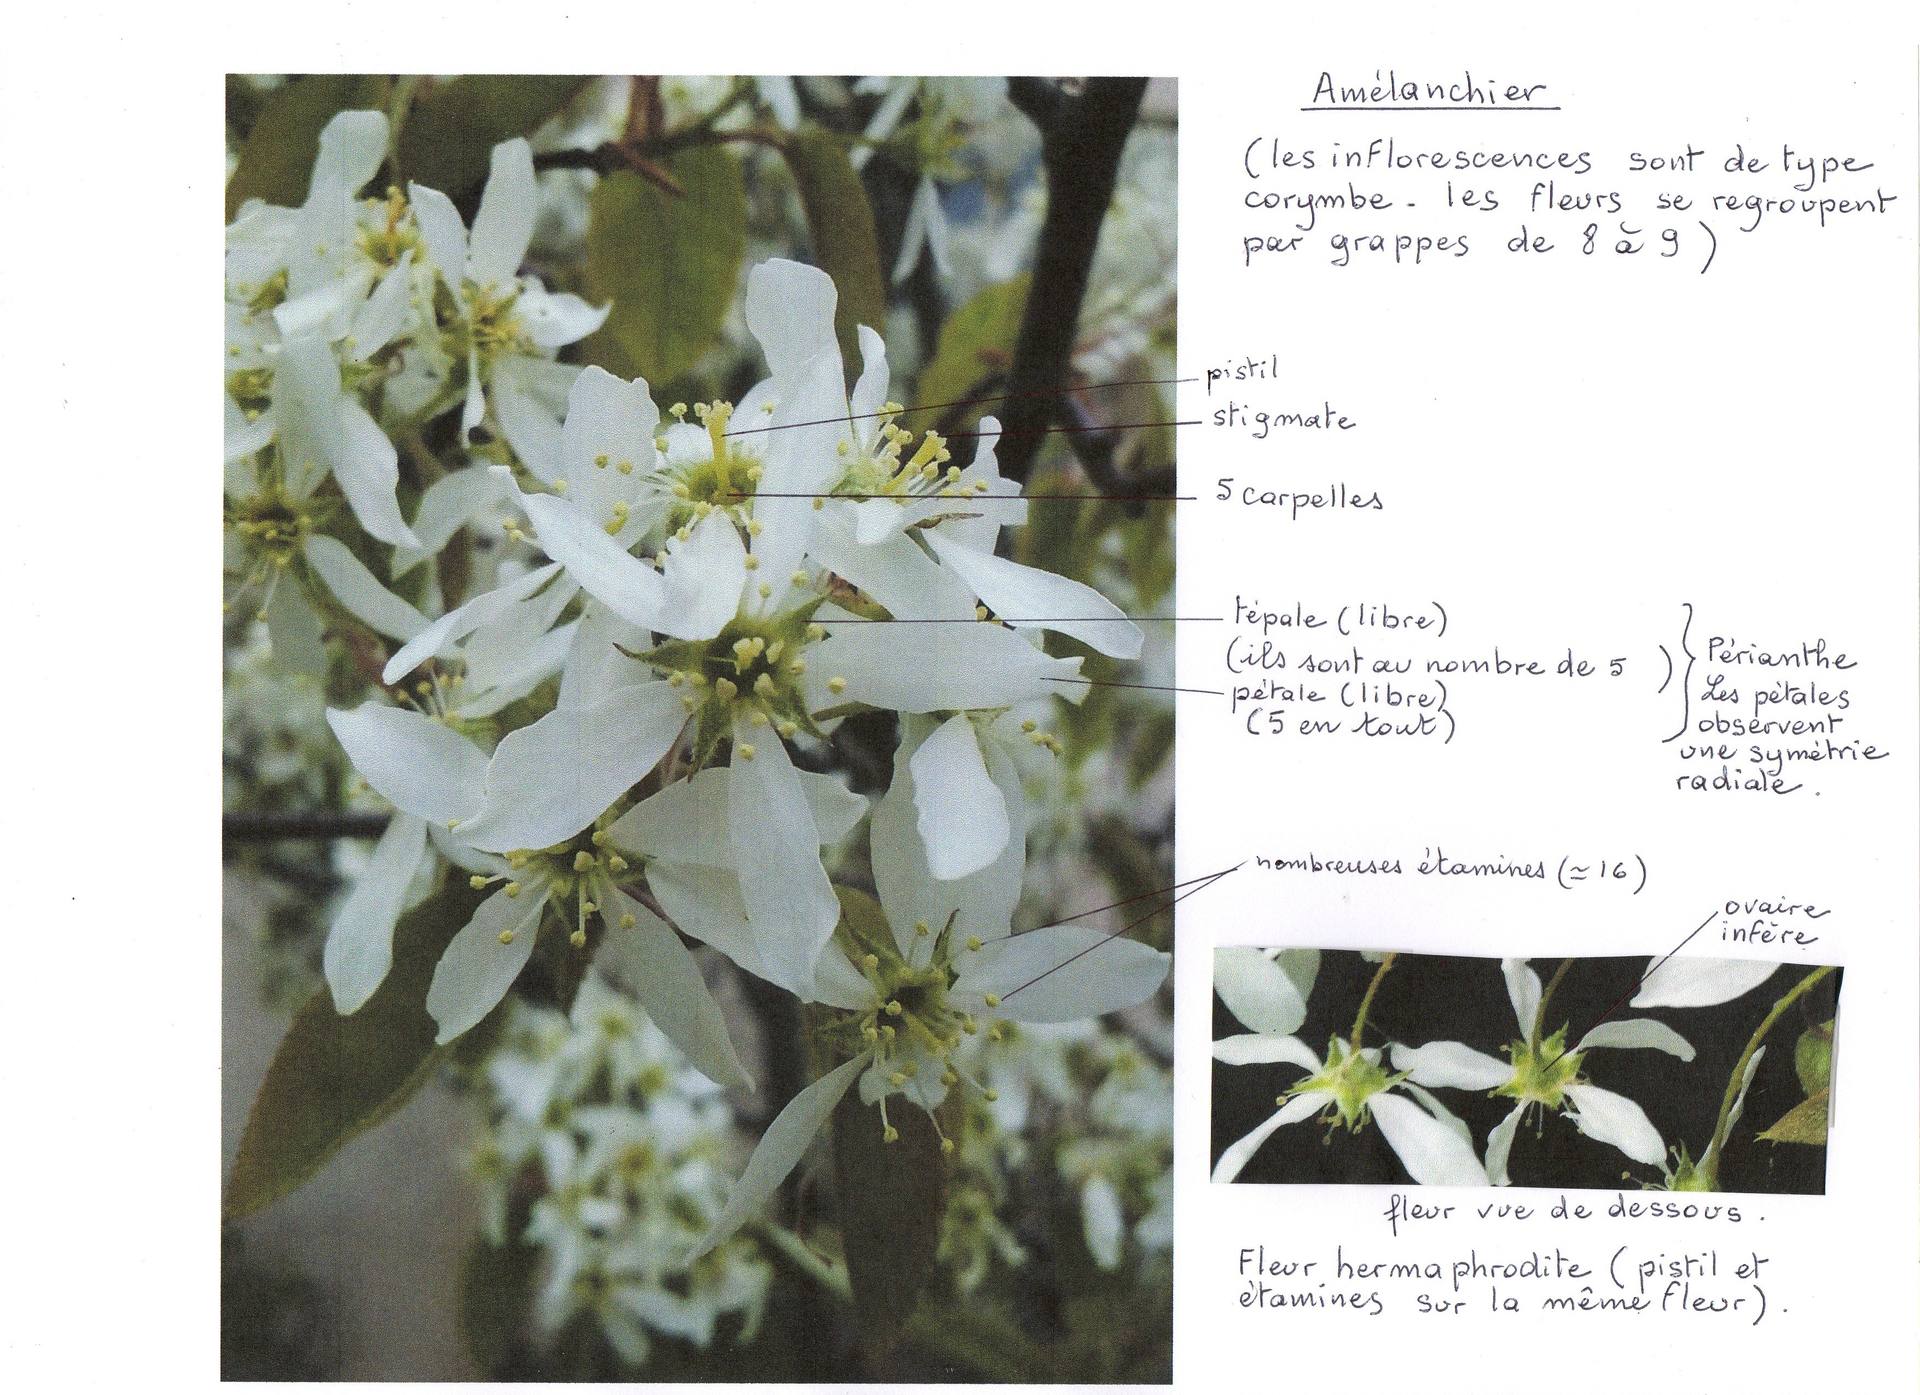 Amélanchier
(les inflorescences sont de type
corymbe. les fleurs se regroupent
par grappes de 8 à 9)
pistil
stigmate
5 carpelles
tépale (libre)
(ils sont au nombre de 5 )
pétale (libre)
(5 en tout)
Périanthe
Les pétales
observent
une symétrie
radiale.
nombreuses étamines (≃ 16)
ovaire
infère
fleur vue de dessous.
Fleur hermaphrodite (pistil et
étamines sur la même fleur).